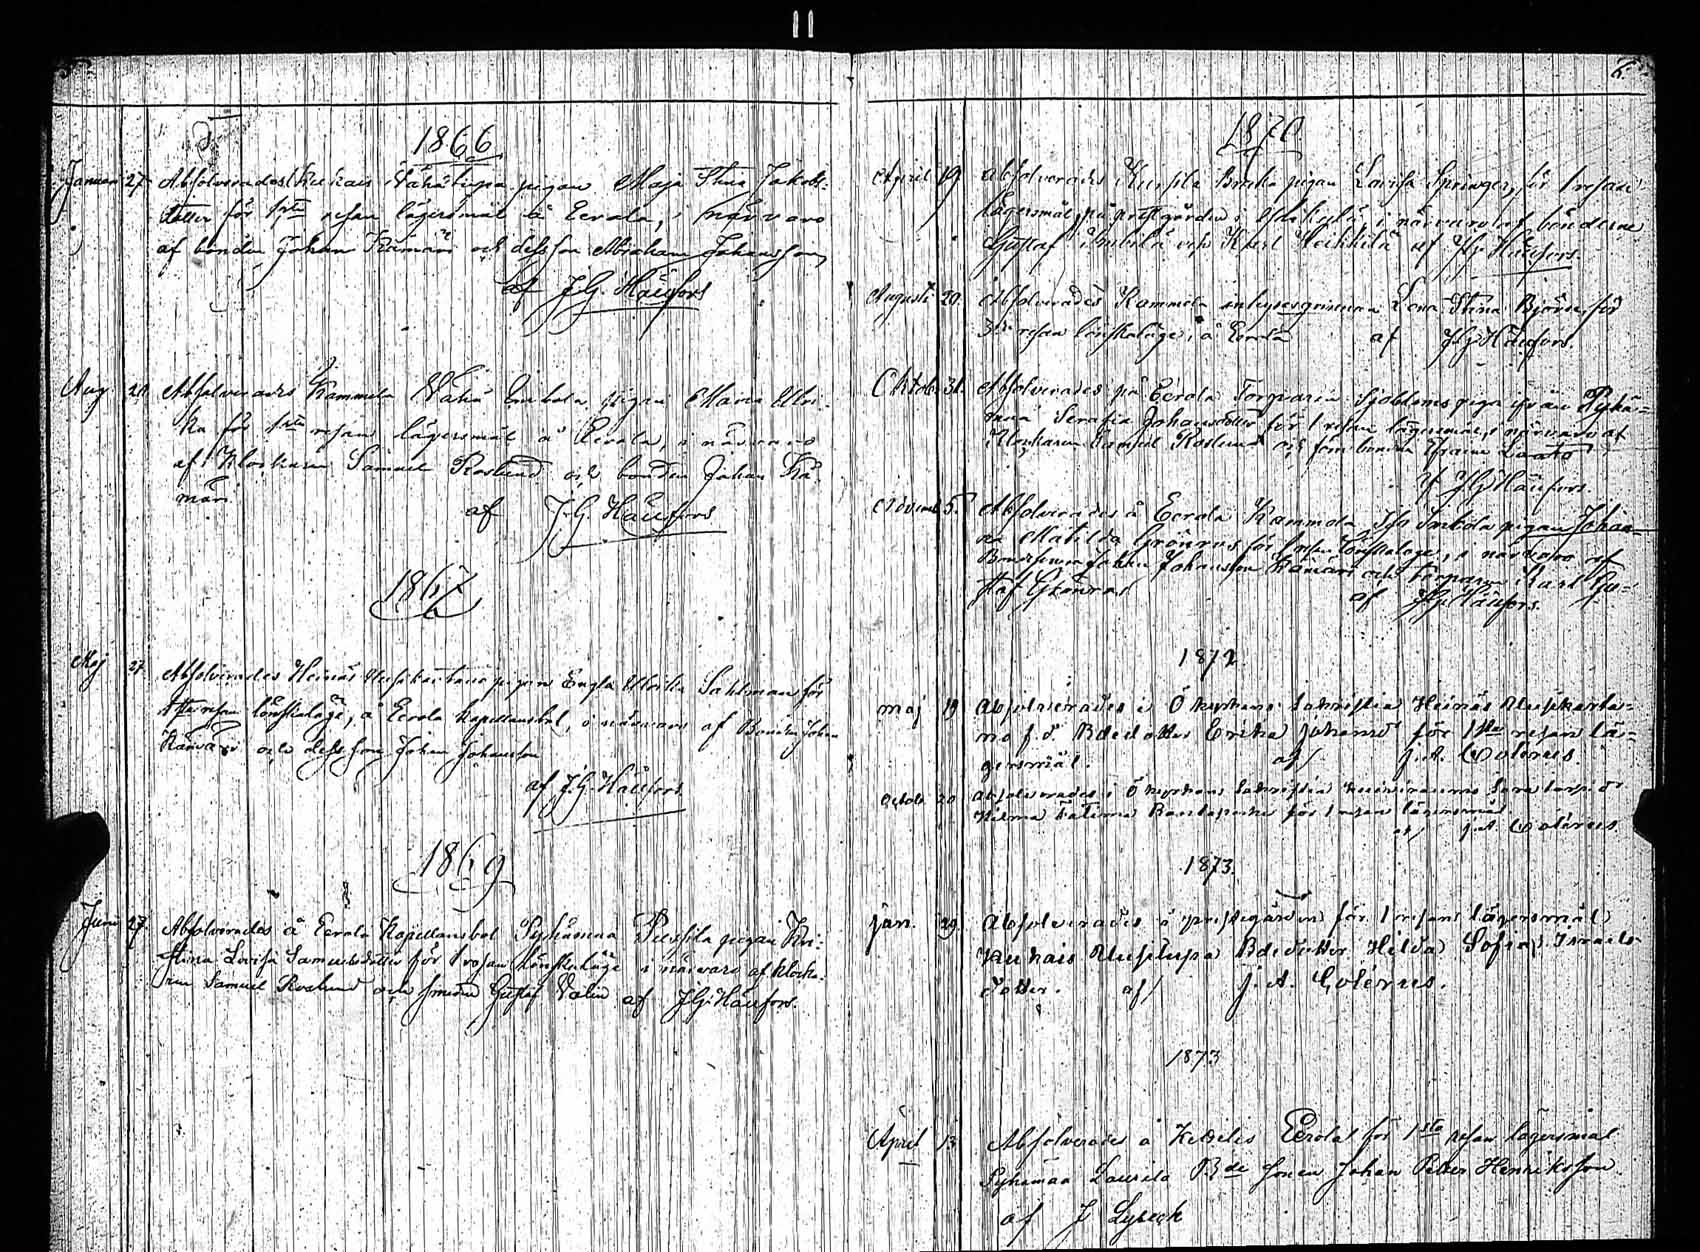 1866
Januari 27. Absolverades Kukais Vähätupa pigan Maja Stina Jakobs-
dotter för 1sta resan lägersmål å Eerola, i närvaro
af bonden Johan Kämäri och dess son Abraham Johansson
af J.G. Häufors
Aug. 20 Absolverades Kammela Vähä Imbola pigan Maria Ulri-
ka för 1sta resan lägersmål å Eerola, i närvaro
af Klockaren Samuel Roslund och bonden Johan Kä-
märi
af J.G. Häufors
1867
Maj 27. Absolverades Heinäs pigan Engla Ulrika Sahlman för
resan lönskaläge, å Eerola Kapellansbol, i närvaro af Bonden Johan
Kämäri och dess son Johan Johansson
af J.G. Häufors
1869
Juni 27. Absolverades å Eerola Kapellansbol Pyhämaa Pursila pigan Kri-
stina Lovisa Samuelsdotter för 1 resan lönskaläge i närvaro af klocka-
ren Samuel Roslund och smeden Gustaf Valin af J.G. Häufors.
1870
April 19 Absolverades pigan Lovisa Springer, för 1 resan
lägersmål, på prestgården i i närvaro af bönderne
Gustaf och Karl Heikkilä af JG Häufors.
Augusti 20. Absolverades Kammela inhysesqvinnan Lena Stina Björn för
3dje resan lönskaläge, å Eerola af JG Häufors.
Oktob. 31. Absolverades på Eerola Torparen Sjöbloms piga ifrån Pyhä-
maa Serafia Johansdotter för 1 resan lägersmål, i närvaro af
Klockaren Samuel Roslund och bonden Efraim Laato
af JG Häufors.
Novemb 5. Absolverades å Eerola Kammela Iso Imbola pigan Johan-
na Matilda Grönrus för resan lönskaläge, i närvaro af
Bondesonen Johan Johansson Kämäri och torparen Karl Gu-
staf Grönros af JG Häufors.
1872.
maj 19 Absolverades i Ö kyrkans sakristia Heinäs
no f.d. Bdedotter Erika Johansd för 1sta resan lä-
gersmål. af J.A. Coterus
Octob 20 Absolverades i Ö kyrkans sakristia
Hilma för 1 resan lägersmål
af J.A. Coterus
1873.
jan. 29. Absolverades å prestgården för 1 resans lägersmål
Kukais Uusitupa Bdedotter Hilda Sofia Israels-
dotter. af J.A. Coterus.
1873
April 13 Absolverades å Eerola för 1sta resan lägersmål
Pyhämaa Laurila Bde sonen Johan Petter Henriksson
af J Lybeck